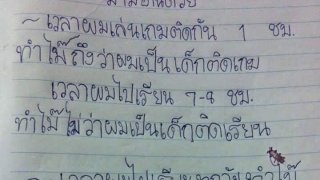 ~ เวลาผมเล่นเกมติดกัน 1 ชม.
ทำไม๊ถึงว่าผมเป็นเด็กติดเกม
เวลาผมไปเรียน 7-8 ชม.
ทำไม๊ไม่ว่าผมเป็นเด็กติดเรียน